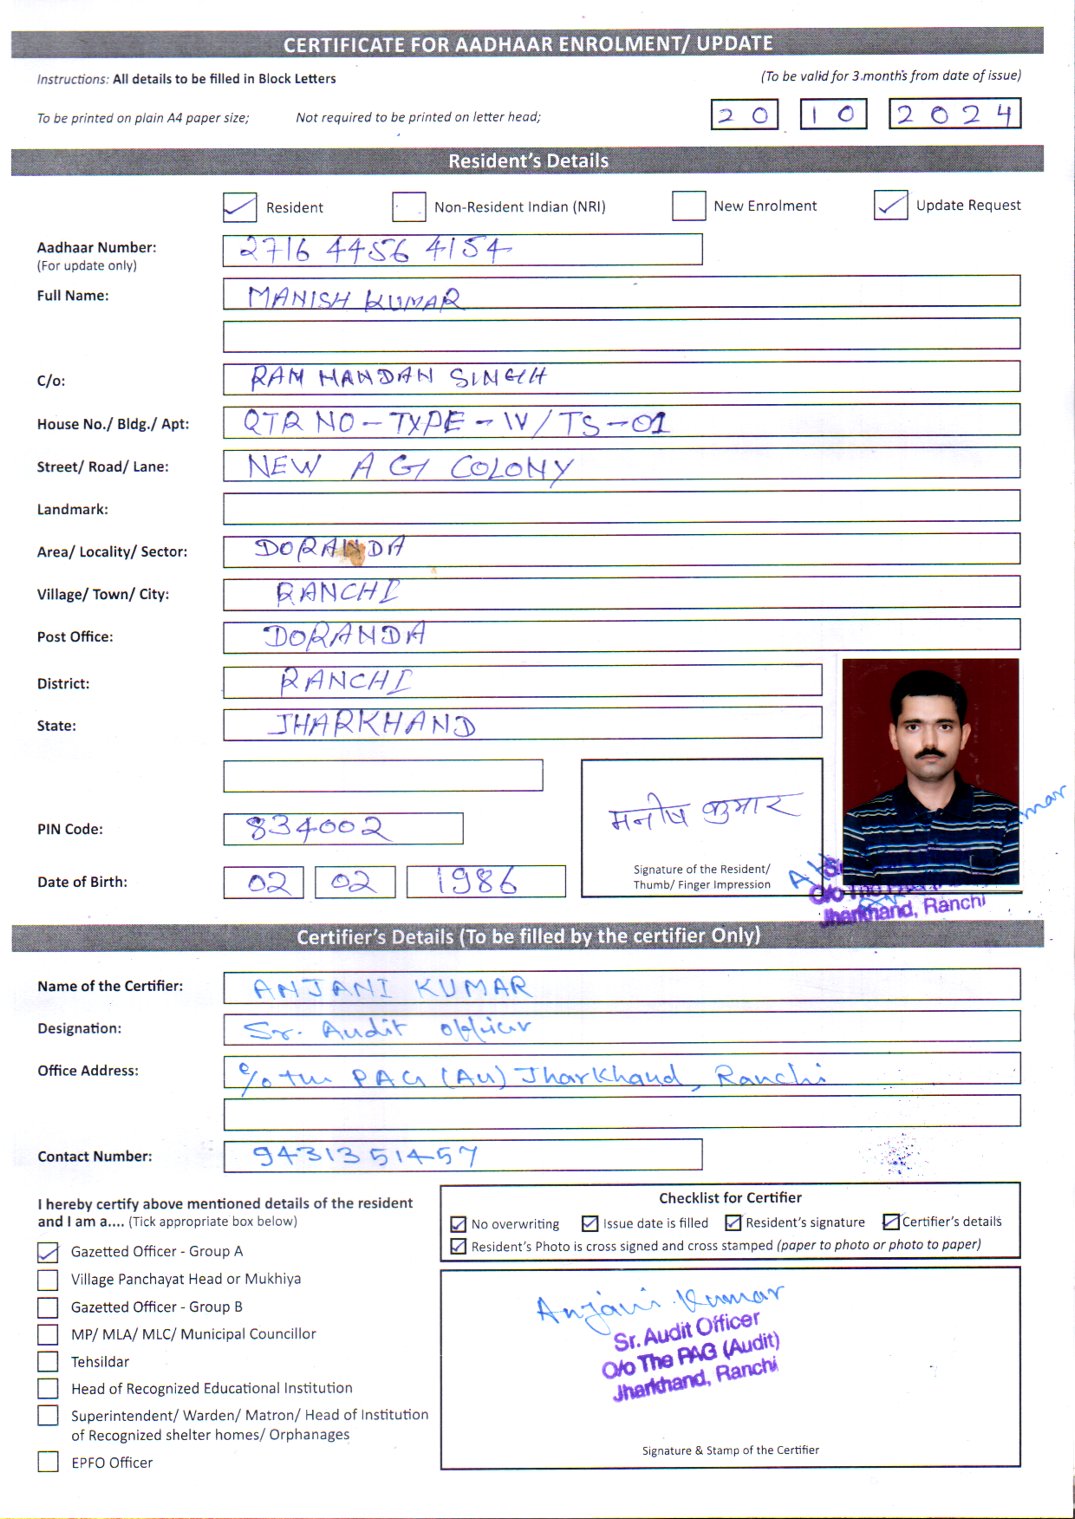 CERTIFICATE FOR AADHAAR ENROLMENT/ UPDATE
Instructions: All details to be filled in Block Letters
(To be valid for 3 months from date of issue)
To be printed on plain A4 paper size; Not required to be printed on letter head;
20 10 2024
Resident's Details
Resident Non-Resident Indian (NRI) New Enrolment Update Request
Aadhaar Number: 2716 4456 4154
(For update only)
Full Name: MANISH KUMAR
C/o: RAM NANDAN SINGH
House No./ Bldg./ Apt: QTR NO-TYPE-IV/TS-01
Street/ Road/ Lane: NEW AG COLONY
Landmark:
Area/ Locality/ Sector: DORANDA
Village/ Town/ City: RANCHI
Post Office: DORANDA
District: RANCHI
State: JHARKHAND
मनीष कुमार
PIN Code: 834002
Signature of the Resident/
Thumb/ Finger Impression
Date of Birth: 02 02 1986
O/o The PAG
Jharkhand, Ranchi
Certifier's Details (To be filled by the certifier Only)
Name of the Certifier: ANJANI KUMAR
Designation: Sr. Audit Officer
Office Address: O/o the PAG (Au) Jharkhand, Ranchi
Contact Number: 9431351457
I hereby certify above mentioned details of the resident
and I am a.... (Tick appropriate box below)
Gazetted Officer - Group A
Village Panchayat Head or Mukhiya
Gazetted Officer - Group B
MP/ MLA/ MLC/ Municipal Councillor
Tehsildar
Head of Recognized Educational Institution
Superintendent/ Warden/ Matron/ Head of Institution
of Recognized shelter homes/ Orphanages
EPFO Officer
Checklist for Certifier
No overwriting Issue date is filled Resident's signature Certifier's details
Resident's Photo is cross signed and cross stamped (paper to photo or photo to paper)
Anjani Kumar
Sr. Audit Officer
O/o The PAG (Audit)
Jharkhand, Ranchi
Signature & Stamp of the Certifier